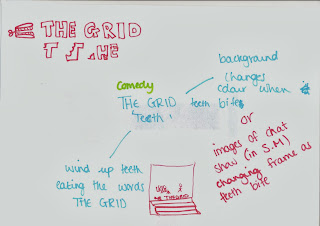 THE GRID
T HE
Comedy
THE GRID
'Teeth'
teeth bite
background
changes
colour when
or
images of chat
show (in S.M)
changing frame as
teeth bite
wind up teeth
eating the words
THE GRID
THE GRID